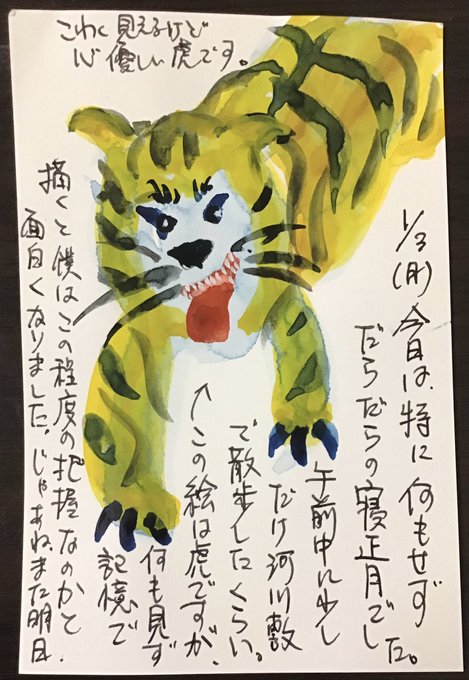 こわく見えるけど
心優しい虎です。
1/3(月)今日は、特に何もせず
だらだらの寝正月でした。
午前中に少し
だけ河川敷
で散歩したくらい。
↑この絵は虎ですが、
何も見ず
記憶で
描くと僕はこの程度の把握なのかと
面白くなりました。じゃあね、また明日.